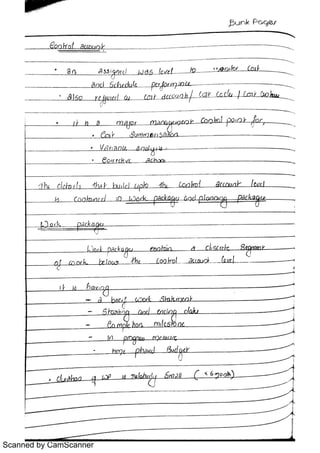 Bunk Pages
Control account
• an assigned WBS level to monitor Cost
and Schedule performance
• also referred as cost account / cost Cells / Cost
• it is a major management control point for,
• Cost Summarisation
• Variance analysis
• Corrective Action
The details that build upto the Control account level
is Contained in work package and planning package
Work package
Work package contain a discrete Segment
of work below the Control account level
it is having
- a brief work Statement
- Starting and ending date
- Completion milestone
- in progress measure
- time phased Budget
• duration of WP is relatively Small
Scanned by CamScanner